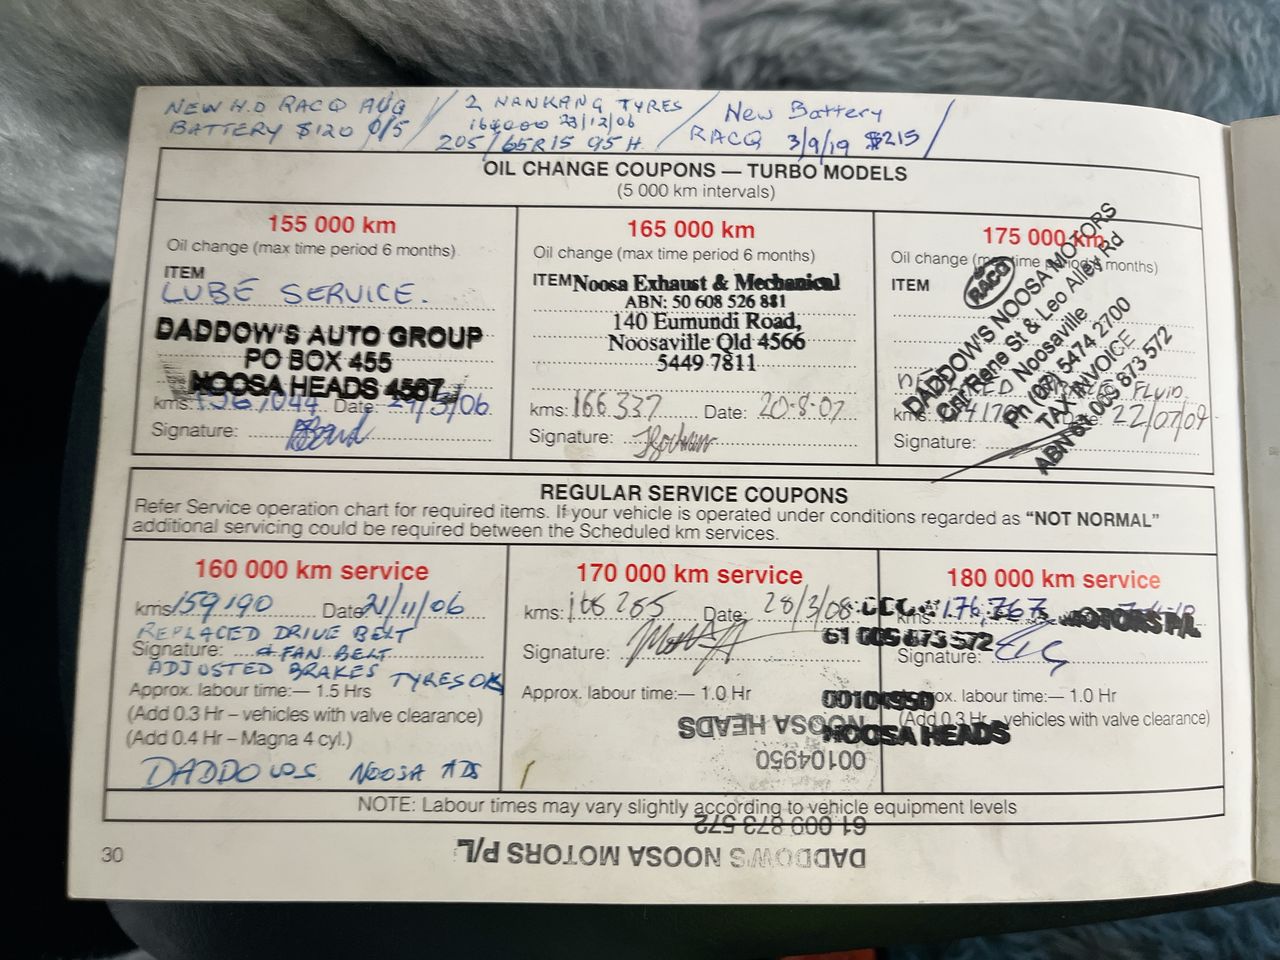 NEW H.D RACQ AUG / 2 NANKANG TYRES / New Battery /
BATTERY $120 0/5 / 164000 23/12/06 / RACQ 3/9/19 $215 /
205/65R15 95H
OIL CHANGE COUPONS — TURBO MODELS
(5 000 km intervals)
155 000 km
Oil change (max time period 6 months)
ITEM
LUBE SERVICE.
DADDOW'S AUTO GROUP
PO BOX 455
NOOSA HEADS 4567
kms: Date: /3/06
Signature:
165 000 km
Oil change (max time period 6 months)
ITEM Noosa Exhaust & Mechanical
ABN: 50 608 526 881
140 Eumundi Road,
Noosaville Qld 4566
5449 7811
kms: 166 337 Date: 20-8-07
Signature:
175 000 km
Oil change (max time period 6 months)
ITEM
RACQ
DADDOW'S NOOSA MOTORS
Cnr Rene St & Leo Alley Rd
Noosaville
Ph (07) 5474 2700
TAX INVOICE
ABN 61 009 873 572
FLUID
kms: Date: 22/07/09
Signature:
REGULAR SERVICE COUPONS
Refer Service operation chart for required items. If your vehicle is operated under conditions regarded as "NOT NORMAL"
additional servicing could be required between the Scheduled km services.
160 000 km service
kms: 159190 Date: 21/11/06
REPLACED DRIVE BELT
Signature: & FAN BELT
ADJUSTED BRAKES TYRES OK
Approx. labour time:— 1.5 Hrs
(Add 0.3 Hr – vehicles with valve clearance)
(Add 0.4 Hr – Magna 4 cyl.)
DADDOWS NOOSA
170 000 km service
kms: 166 265 Date: 28/3/08
Signature:
Approx. labour time:— 1.0 Hr
NOOSA HEADS
00104950
180 000 km service
kms: 176,767 MOTORS P/L
61 009 873 572
Signature:
00104950
Approx. labour time:— 1.0 Hr
(Add 0.3 Hr – vehicles with valve clearance)
NOOSA HEADS
NOTE: Labour times may vary slightly according to vehicle equipment levels
61 009 873 572
DADDOW'S NOOSA MOTORS P/L
30